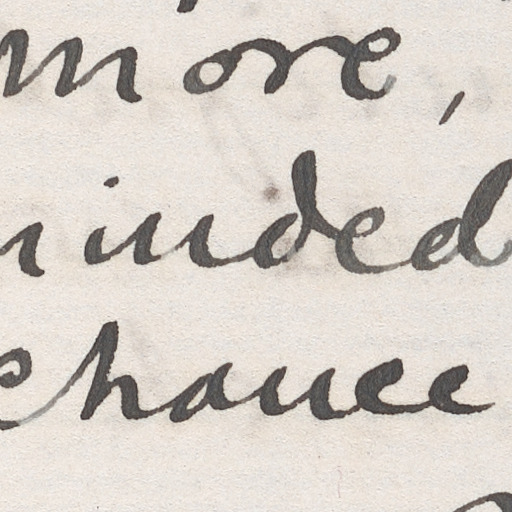 more,
minded
chance